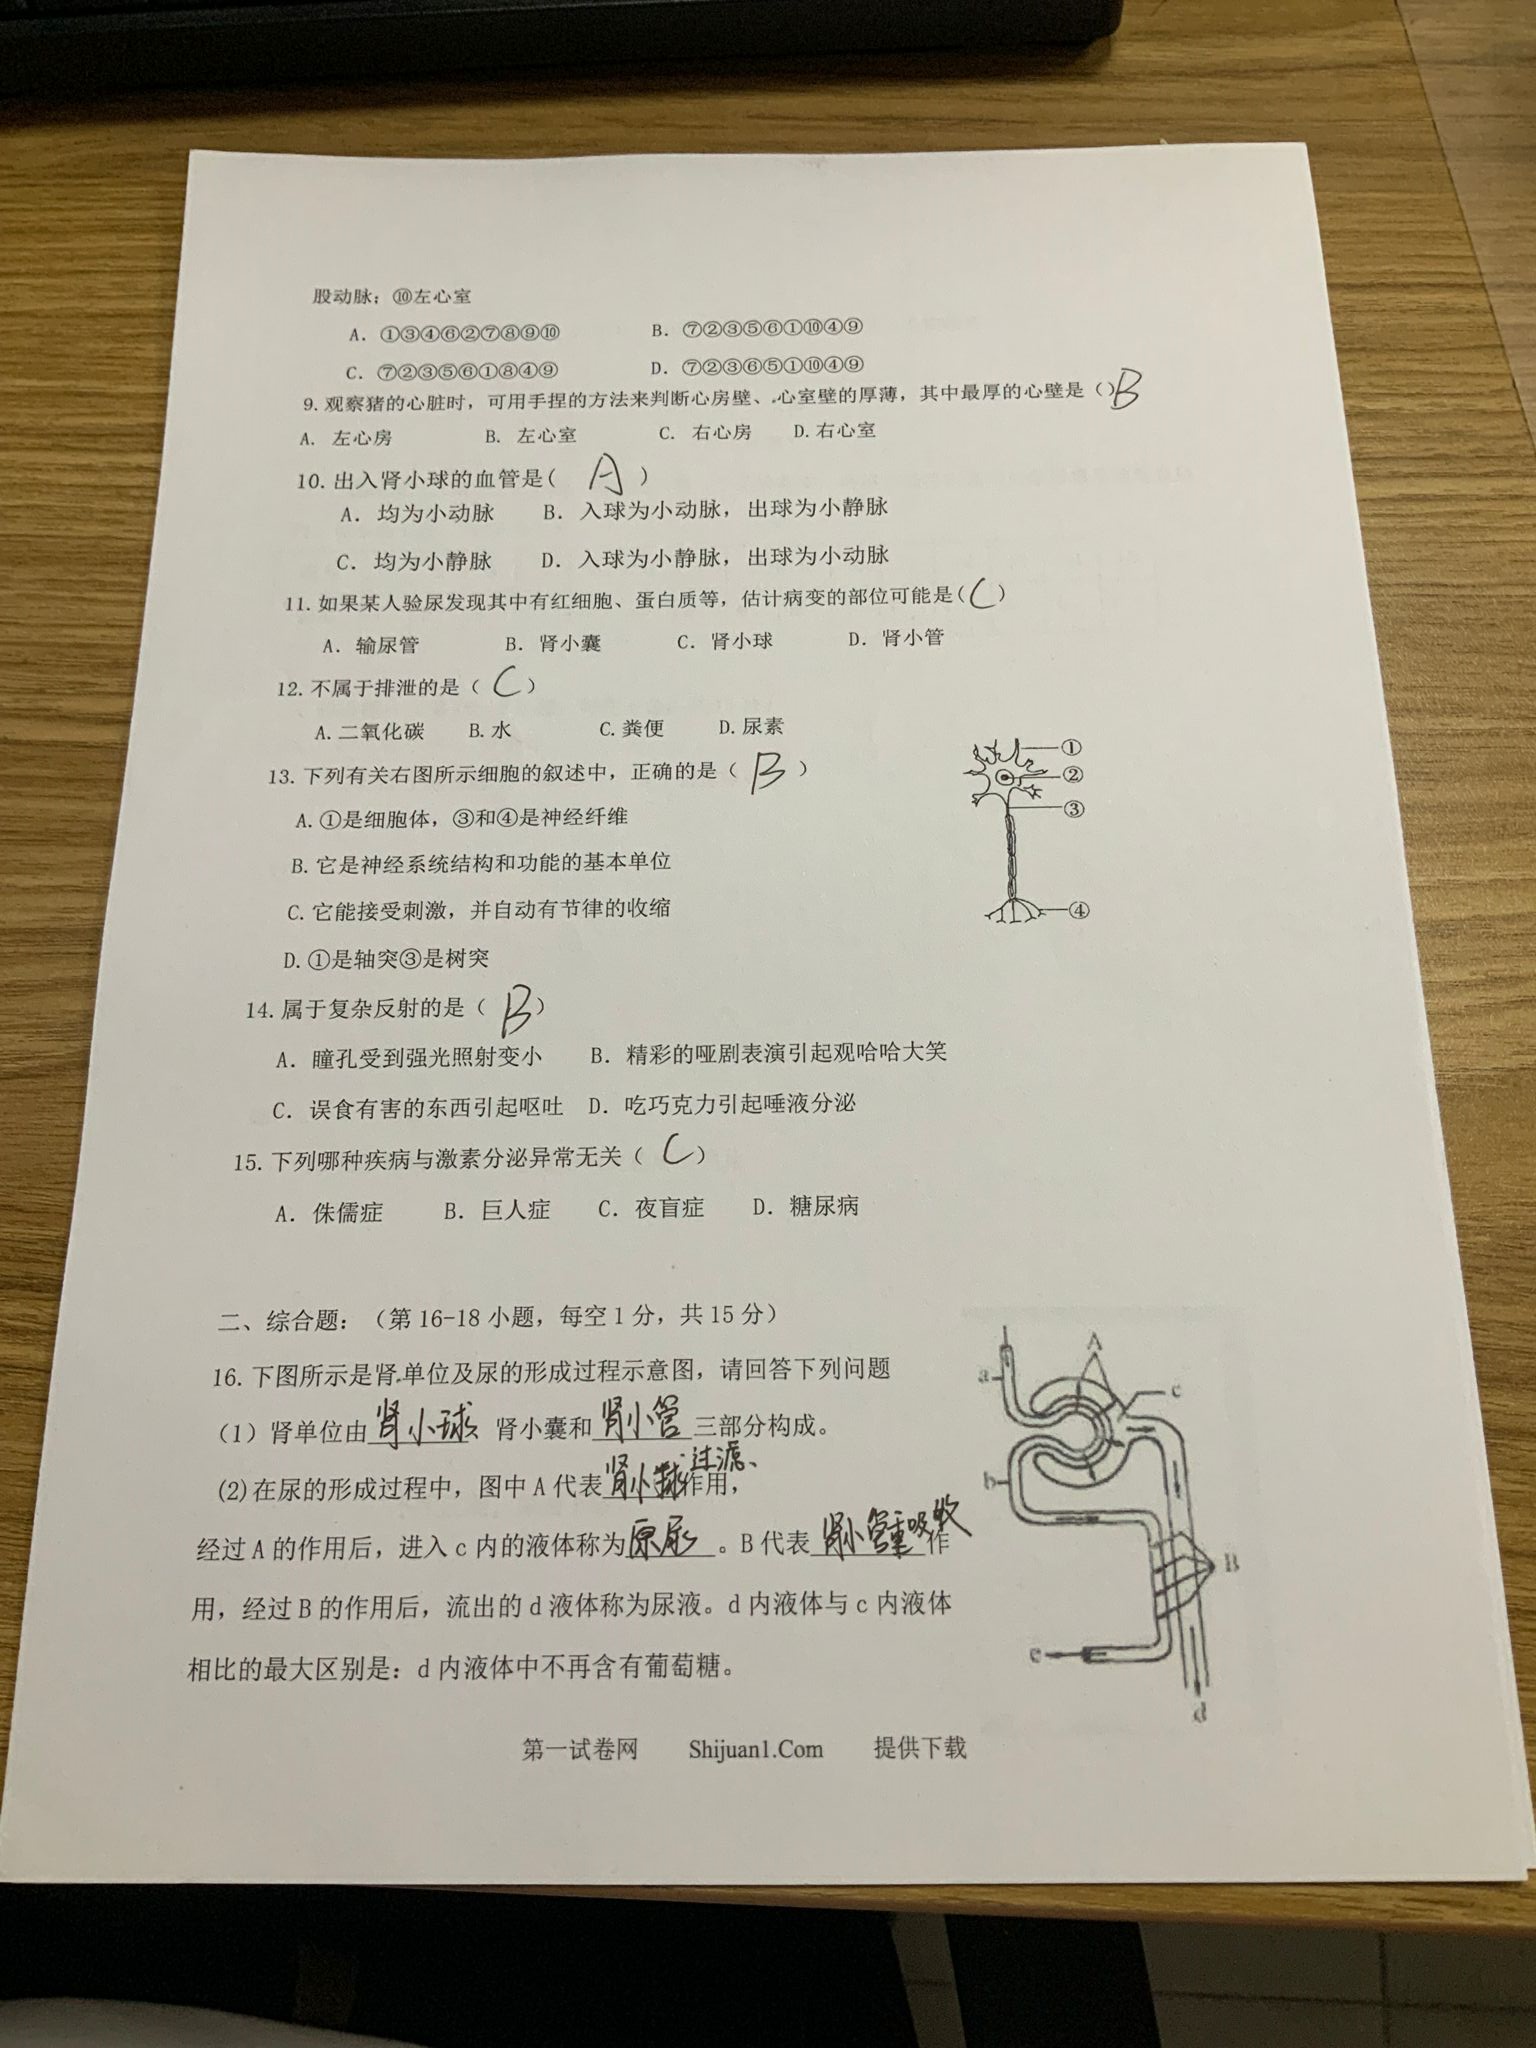 股动脉；⑩左心室
A. ①③④⑥②⑦⑧⑨⑩ B. ⑦②③⑤⑥①⑩④⑨
C. ⑦②③⑤⑥①⑧④⑨ D. ⑦②③⑥⑤①⑩④⑨
9. 观察猪的心脏时，可用手捏的方法来判断心房壁、心室壁的厚薄，其中最厚的心壁是（）B
A. 左心房 B. 左心室 C. 右心房 D.右心室
10. 出入肾小球的血管是( A )
A. 均为小动脉 B. 入球为小动脉，出球为小静脉
C. 均为小静脉 D. 入球为小静脉，出球为小动脉
11. 如果某人验尿发现其中有红细胞、蛋白质等，估计病变的部位可能是(C)
A. 输尿管 B. 肾小囊 C. 肾小球 D. 肾小管
12. 不属于排泄的是（ C ）
A.二氧化碳 B.水 C.粪便 D.尿素
13. 下列有关右图所示细胞的叙述中，正确的是（ B ）
A.①是细胞体，③和④是神经纤维
B.它是神经系统结构和功能的基本单位
C.它能接受刺激，并自动有节律的收缩
D.①是轴突③是树突
①
②
③
④
14. 属于复杂反射的是（ B ）
A. 瞳孔受到强光照射变小 B. 精彩的哑剧表演引起观哈哈大笑
C. 误食有害的东西引起呕吐 D. 吃巧克力引起唾液分泌
15. 下列哪种疾病与激素分泌异常无关（ C ）
A. 侏儒症 B. 巨人症 C. 夜盲症 D. 糖尿病
二、综合题：（第 16-18 小题，每空 1 分，共 15 分）
16. 下图所示是肾单位及尿的形成过程示意图，请回答下列问题
（1）肾单位由肾小球 肾小囊和肾小管三部分构成。
(2)在尿的形成过程中，图中 A 代表肾小球过滤、作用，
经过 A 的作用后，进入 c 内的液体称为原尿。B 代表肾小管重吸收作
用，经过 B 的作用后，流出的 d 液体称为尿液。d 内液体与 c 内液体
相比的最大区别是：d 内液体中不再含有葡萄糖。
A
a
c
b
B
e
d
第一试卷网 Shijuan1.Com 提供下载